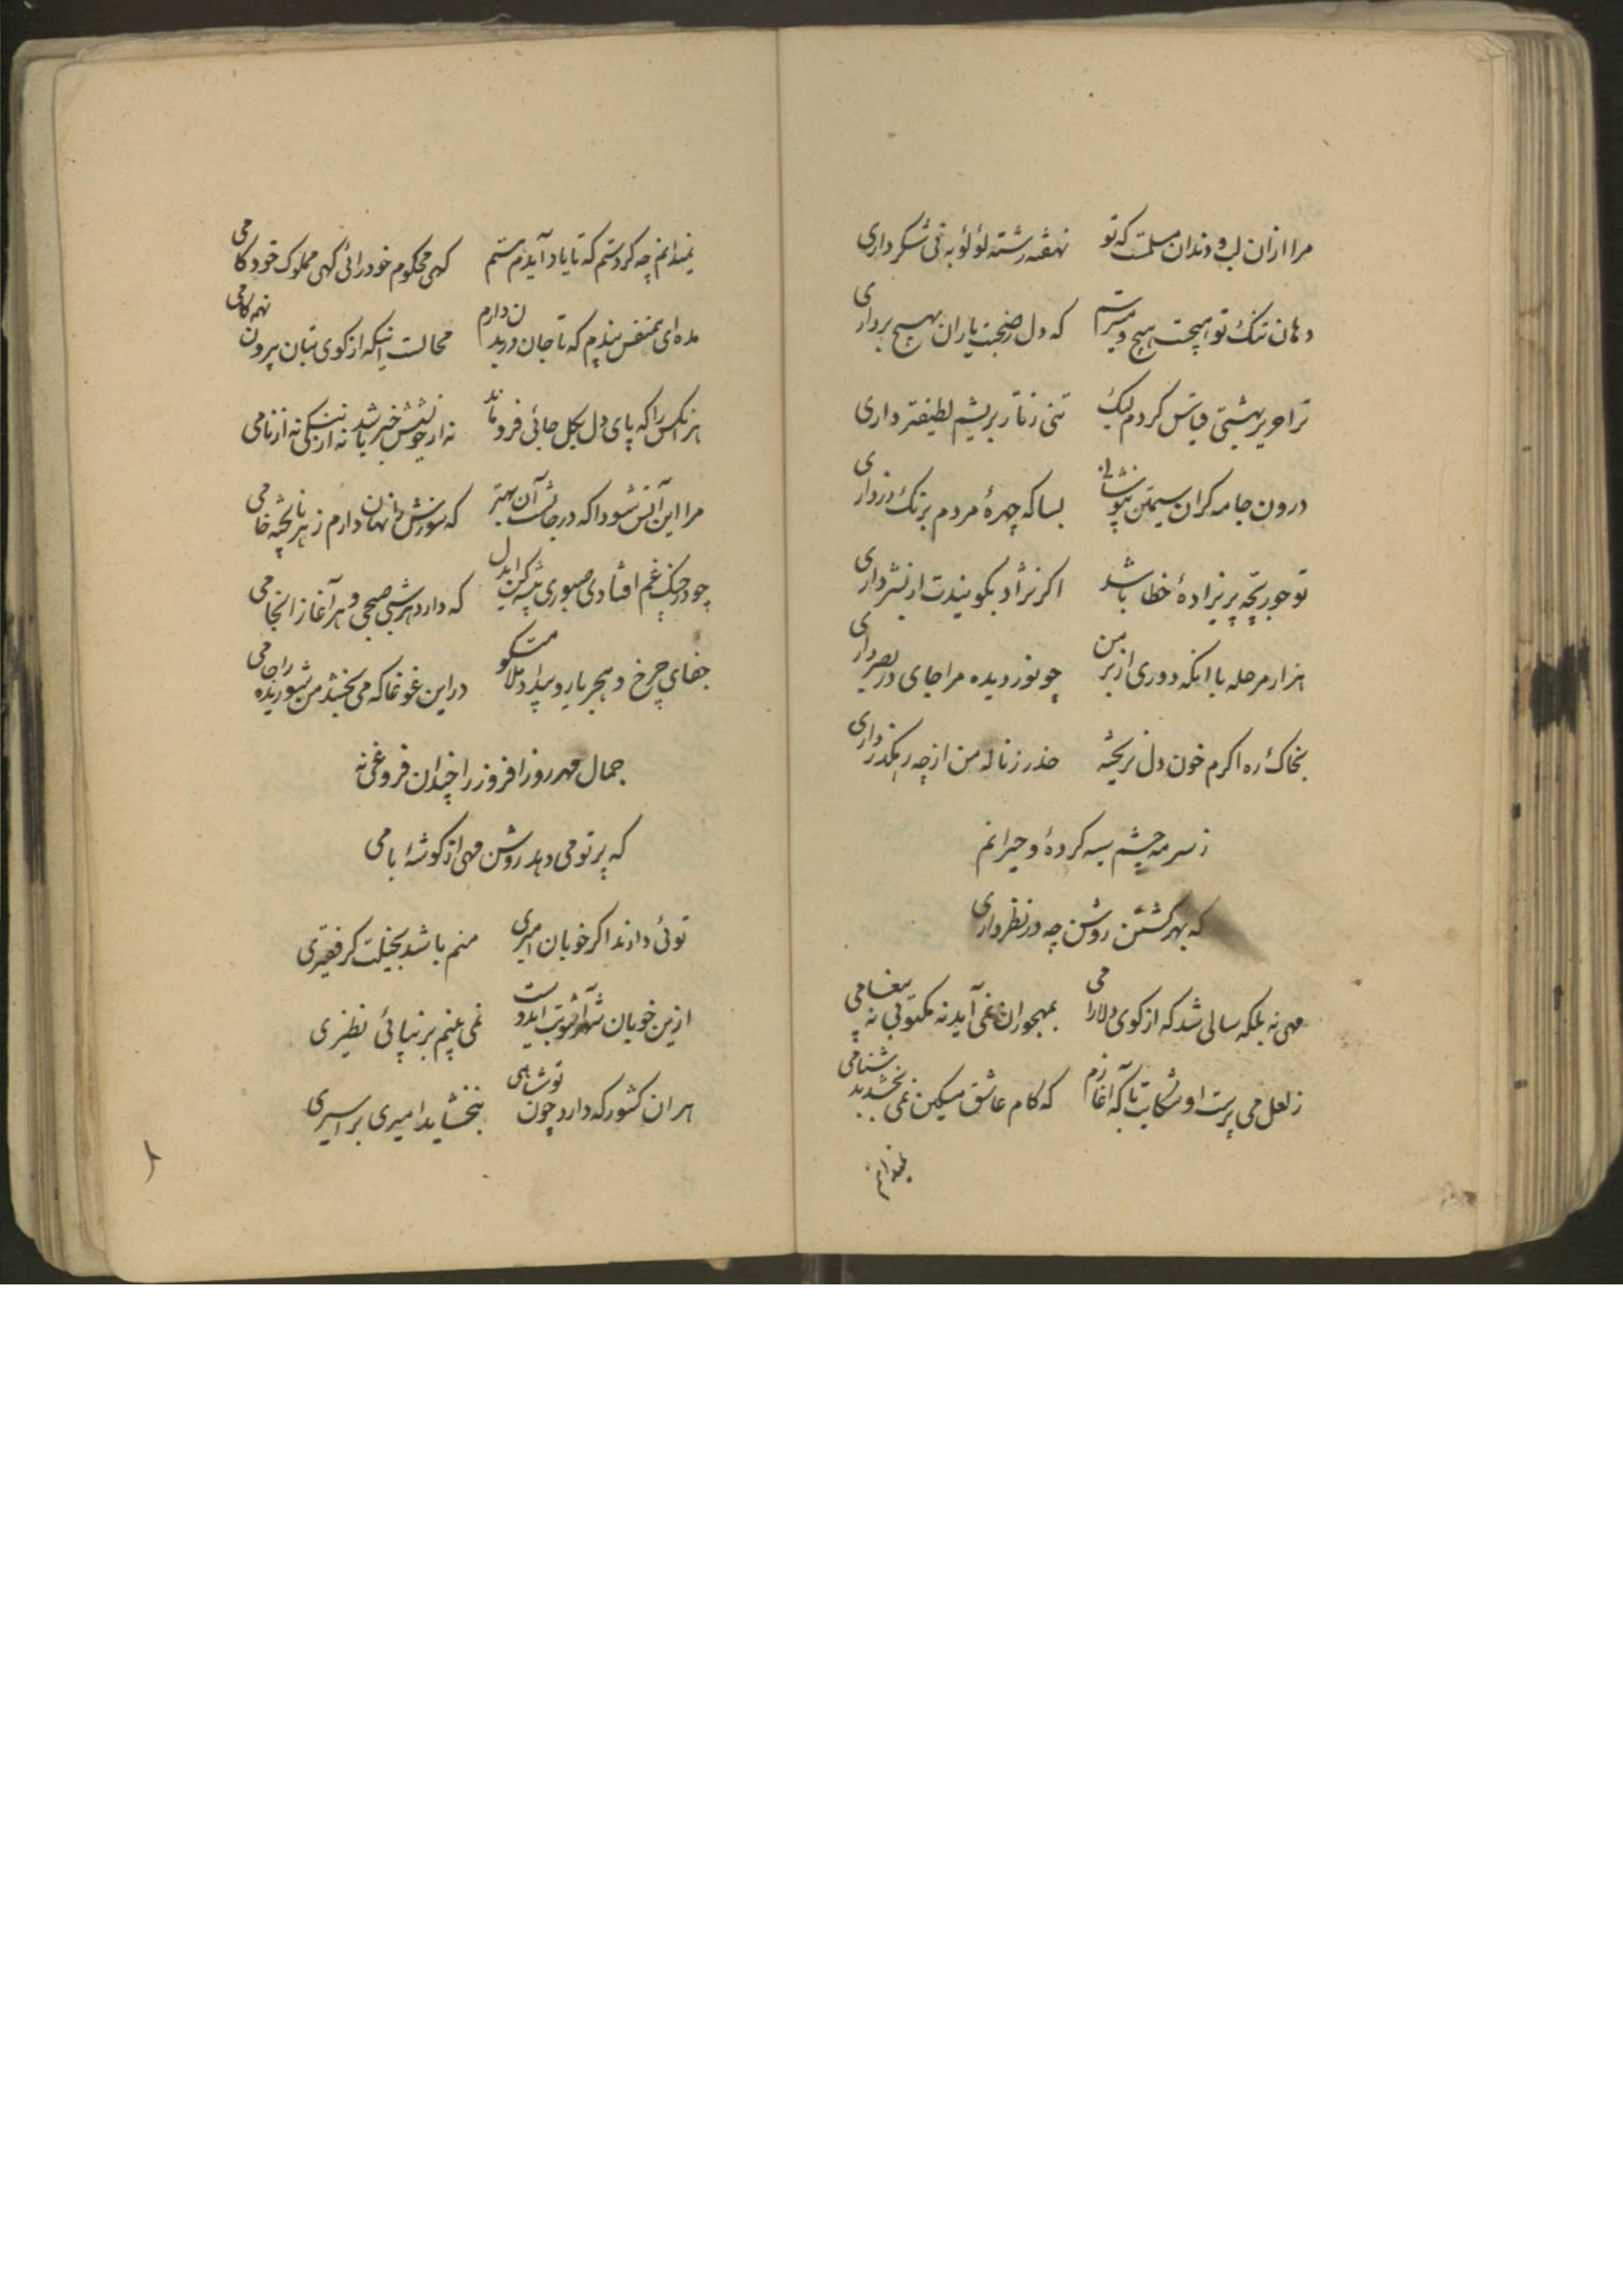 مرا ازان لب و دندان مسلمست که تو نهفته رشته لؤلؤ به نی شکر داری
دهان تنک تو هیچست هیچ و میترسم که دل ز صحبت یاران بهیچ برداری
ترا حریر بهشتی قیاس کردم لیک تنی ز تار بریشم لطیفتر داری
درون جامه کران سیمتن بپوشانی بسا که چهرهٔ مردم برنک زر داری
تو حور بچه پریزادهٔ خطا باشد اکر نژاد بکویندت از بشر داری
هزار مرحله با انکه دوری از بر من چو نور دیده مرا جای در بصر داری
بخاک ره اکرم خون دل نریختهٔ حذر ز نالهٔ من از چه رهکذر داری
ز سرمه چشم سیه کردهٔ و حیرانم
که بهر کشتن روشن چه در نظر داری
مهی نه بلکه سالی شد که از کوی دلارامی بمهجوران نمی آید نه مکتوبی نه پیغامی
ز لعل می پرست او شکایت تا که آغازم که کام عاشق مسکین نمی بخشد بدشنامی
نمیدانم
نمیدانم چه کردستم که تا یاد آیدم ستم کهی محکوم خودرائی کهی مملوک خودکامی
مده ای همنفس پندم که تا جان در بدن دارم محالست اینکه از کوی بتان بیرون نهم کامی
هر انکس را که پای دل بکل جائی فرو ماند نه از خویشش خبر باشد نه از ننکی نه از نامی
مرا این آتش سودا که در جانست آن بهتر که سوزش نهان دارم ز هر ناپخته خامی
چو در چنک غم افتادی صبوری پیشه کن ایدل که دارد هر شبی صبحی و هر آغاز انجامی
جفای چرخ و هجر یار و بیداد ملامتکو در این غوغا که می بخشد من شوریده را جامی
جمال مهر روز افروز را چندان فروغی نه
که پرتو می دهد روشن مهی از کوشهٔ بامی
توئی دارند اکر خوبان امیری منم باشد بخیلت کر فقیری
ازین خوبان شهر آشوب ایدوست نمی بینم بزیبائی نظیری
هر ان کشور که دارد چون تو شاهی ببخشاید امیری بر اسیری